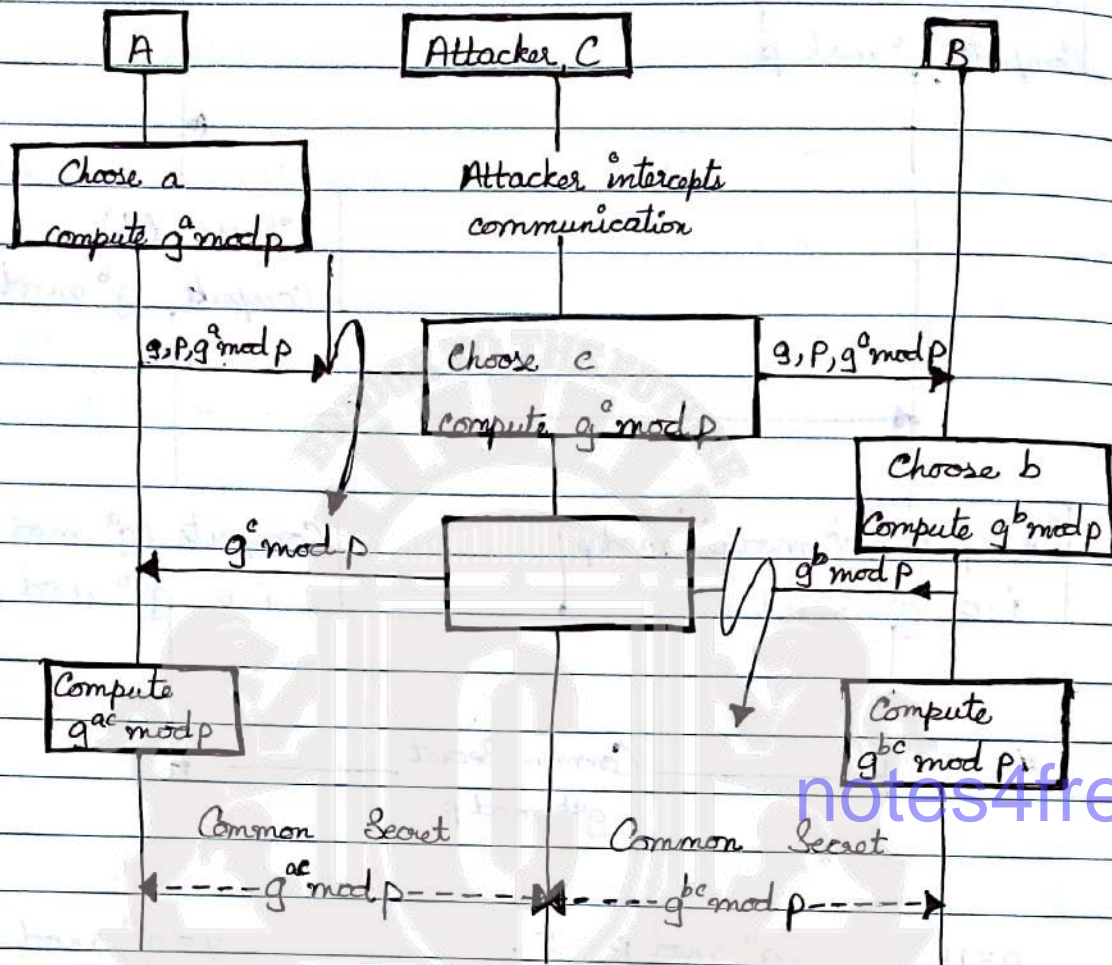 A
Attacker, C
B
Choose a
compute g^a mod p
Attacker intercepts
communication
g, P, g^a mod p
Choose c
compute g^c mod p
g, P, g^c mod P
Choose b
Compute g^b mod p
g^c mod p
g^b mod p
Compute
g^ac mod p
Compute
g^bc mod p.
notes4fre
Common Secret
Common Secret
g^ac mod p
g^bc mod p